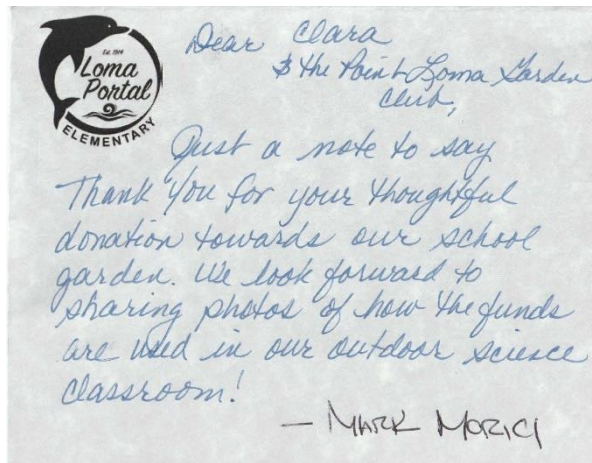 Est. 1914
Loma
Portal
ELEMENTARY
Dear Clara
& the Point Loma Garden
Club,
Just a note to say
Thank You for your thoughtful
donation towards our school
garden. We look forward to
sharing photos of how the funds
are used in our outdoor science
classroom!
— MARK MORICI